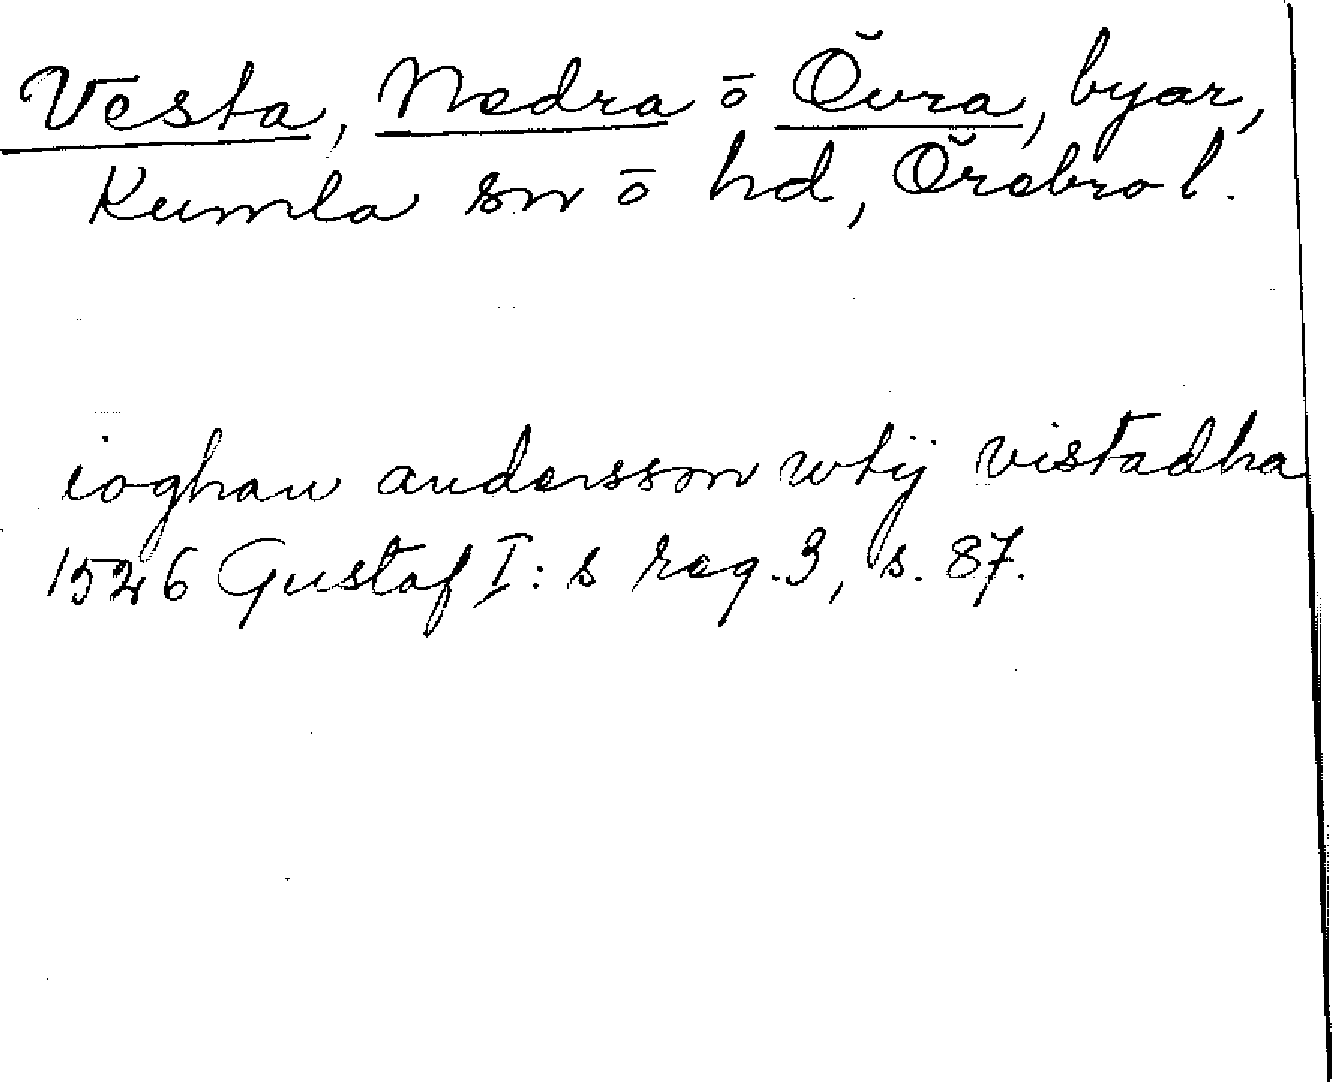 Vesta, Nedra o Övra, byar,
Kumla sn o hd, Örebro l.
ioghan andersson wtij vistadha
1526 Gustaf I:s reg. 3, s. 87.